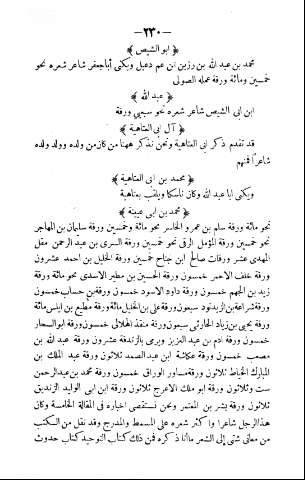 —٢٣٠—
﴿ ابو الشيص ﴾
محمد بن عبد الله بن رزين ابن عم دعبل ويكنى أباجعفر شاعر شعره نحو
خمسين ومائة ورقة عمله الصولى
﴿ عبد الله ﴾
ابن ابى الشيص شاعر شعره نحو سبعين ورقة
﴿ آل ابى العتاهية ﴾
قد تقدم ذكر ابى العتاهية ونحن نذكر ههنا من كان من ولده وولد ولده
شاعرًا فمنهم
﴿ محمد بن ابى العتاهية ﴾
ويكنى ابا عبد الله وكان ناسكا ويلقب بعتاهية
﴿ محمد بن ابى عيينة ﴾
نحو مائة ورقة سلم بن عمرو الخاسر نحو مائة وخمسين ورقة سلمان بن المهاجر
نحو خمسين ورقة المؤمل الرقى نحو خمسين ورقة السرى بن عبد الرحمن مقل
المهدى عشر ورقات صالح ابن جناح خمسين ورقة الخليل بن احمد عشرون
ورقة خلف الاحمر خمسون ورقة الحسين بن مطير الاسدى نحو مائة ورقة
زيد بن الجهم خمسون ورقة داود الاسود خمسون ورقة بن حساب خمسون
ورقة شراعة بن الزندبود سبعون ورقة على بن الخليل مائة ورقة مطيع بن اياس مائة
ورقة يحيى بن زياد الحارثى سبعون ورقة منقذ الهلالى خمسون ورقة ابو السحار
خمسون ورقة آدم بن عبد العزيز ويرمى بالزندقة عشرون ورقة عبد الله بن
مصعب خمسون ورقة عكاشة ابن عبد الصمد ثلاثون ورقة عبد الملك بن
المبارك الخياط ثلاثون ورقة مساور الوراق خمسون ورقة محمد بن عبد الرحمن
ست وثلاثون ورقة ابو ملك الاعرج ثلاثون ورقة ابن ابى الوليد الزنديق
ثلاثون ورقة بشر بن المعتمر ونحن نستقصى اخباره فى المقالة الخامسة وكان
هذا الرجل شاعرا واكثر شعره على المسمط والمدرج وقد نقل من الكتب
من معانى شتى إلى الشعر ما أنا ذاكره فمن ذلك كتاب التوحيد كتاب حدوث